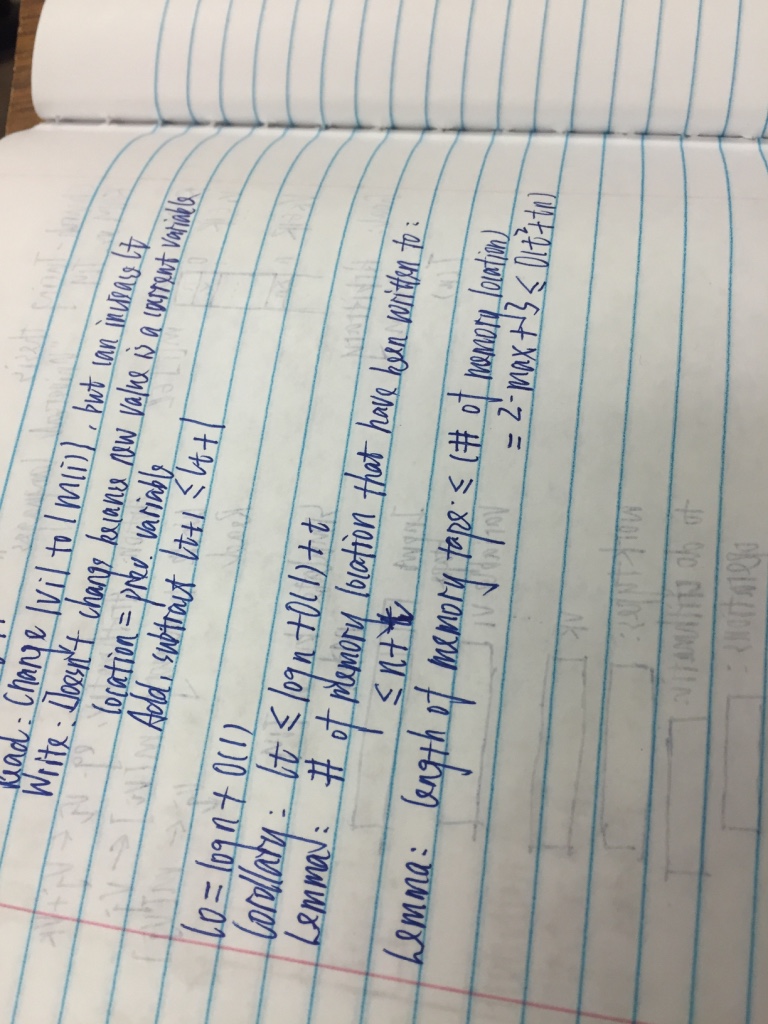 Read: Change |Vi| to |M(i)|, but can increase lt
Write: Doesn't change because new value is a current variable
location = prev. variable
Add, subtract lt+1 ≤ lt+1
l0 = log n + O(1)
Corollary: lt ≤ log n + O(1) + t
Lemma: # of memory location that have been written to:
≤ n + t
Lemma: length of memory tape: ≤ (# of memory location)
= 2·max + 3 ≤ O(t²+tn)